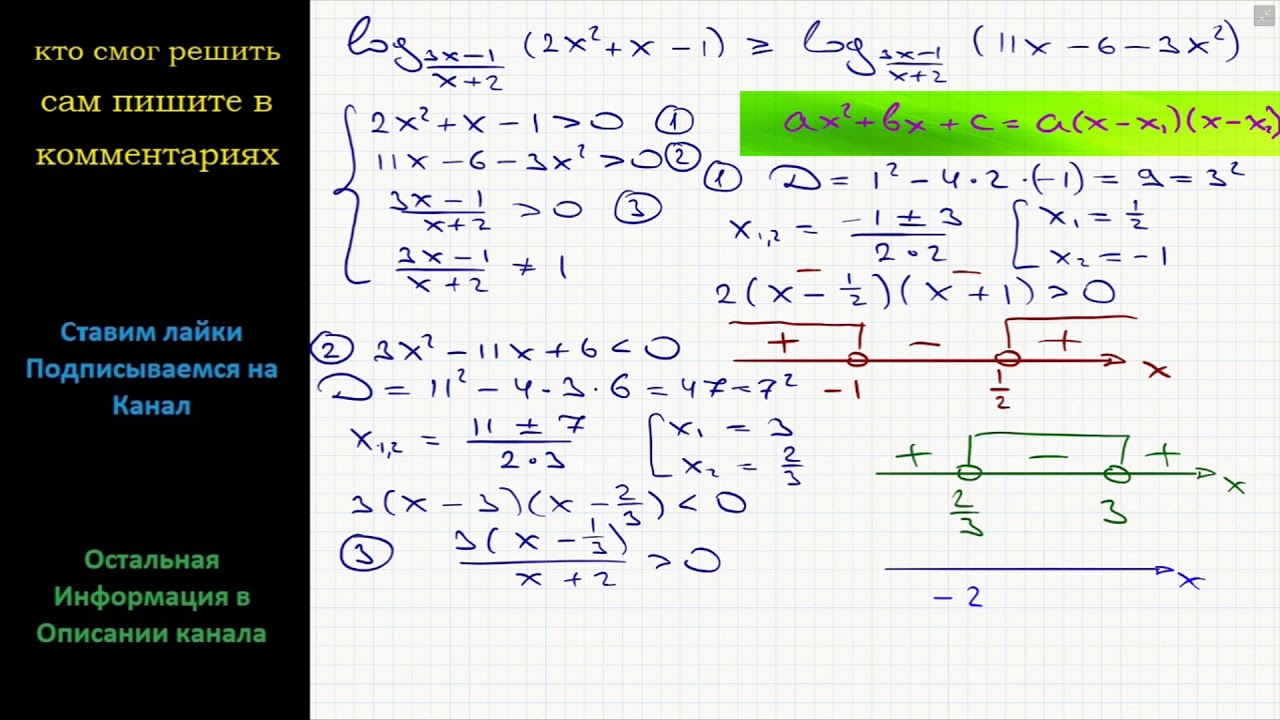 кто смог решить
сам пишите в
комментариях
Ставим лайки
Подписываемся на
Канал
Остальная
Информация в
Описании канала
log_{(3x-1)/(x+2)} (2x²+x-1) ≥ log_{(3x-1)/(x+2)} (11x-6-3x²)
{ 2x²+x-1>0 ①
11x-6-3x²>0 ②
(3x-1)/(x+2) > 0 ③
(3x-1)/(x+2) ≠ 1
ax²+bx+c=a(x-x₁)(x-x₂)
① D = 1²-4·2·(-1) = 9 = 3²
x₁,₂ = (-1±3)/(2·2) [ x₁ = 1/2
x₂ = -1
2(x-1/2)(x+1)>0
+ - +
-1 1/2 x
② 3x²-11x+6<0
D = 11²-4·3·6 = 47 = 7²
x₁,₂ = (11±7)/(2·3) [ x₁ = 3
x₂ = 2/3
3(x-3)(x-2/3)<0
+ - +
2/3 3 x
③ 3(x-1/3)/(x+2) > 0
-2 x